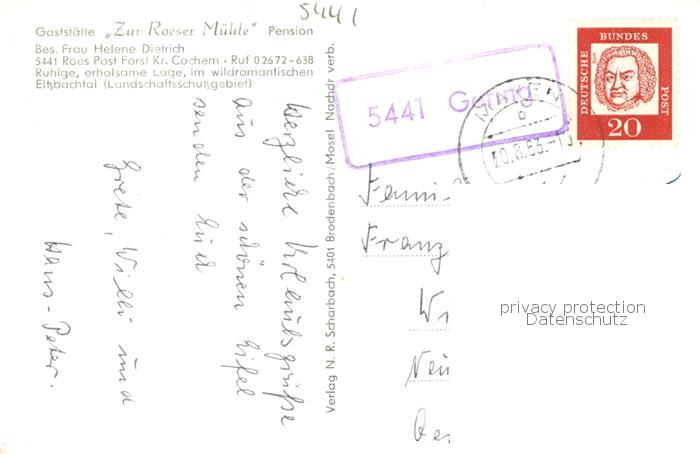 5441
Gaststätte „Zur Roeser Mühle" Pension
Bes. Frau Helene Dietrich
5441 Roes Post Forst Kr. Cochem · Ruf 02672-638
Ruhige, erholsame Lage, im wildromantischen
Eltzbachtal (Landschaftsschutzgebiet)
Herzliche Urlaubsgrüße
aus der schönen Eifel
senden Euch
Grete, Willi und
Hans-Peter.
Verlag N. R. Scharbach, 5401 Brodenbach/Mosel Nachdr verb.
5441
MAYEN
b
DEUTSCHE
BUNDES
POST
20
Fami
Franz
privacy protection
Datenschutz